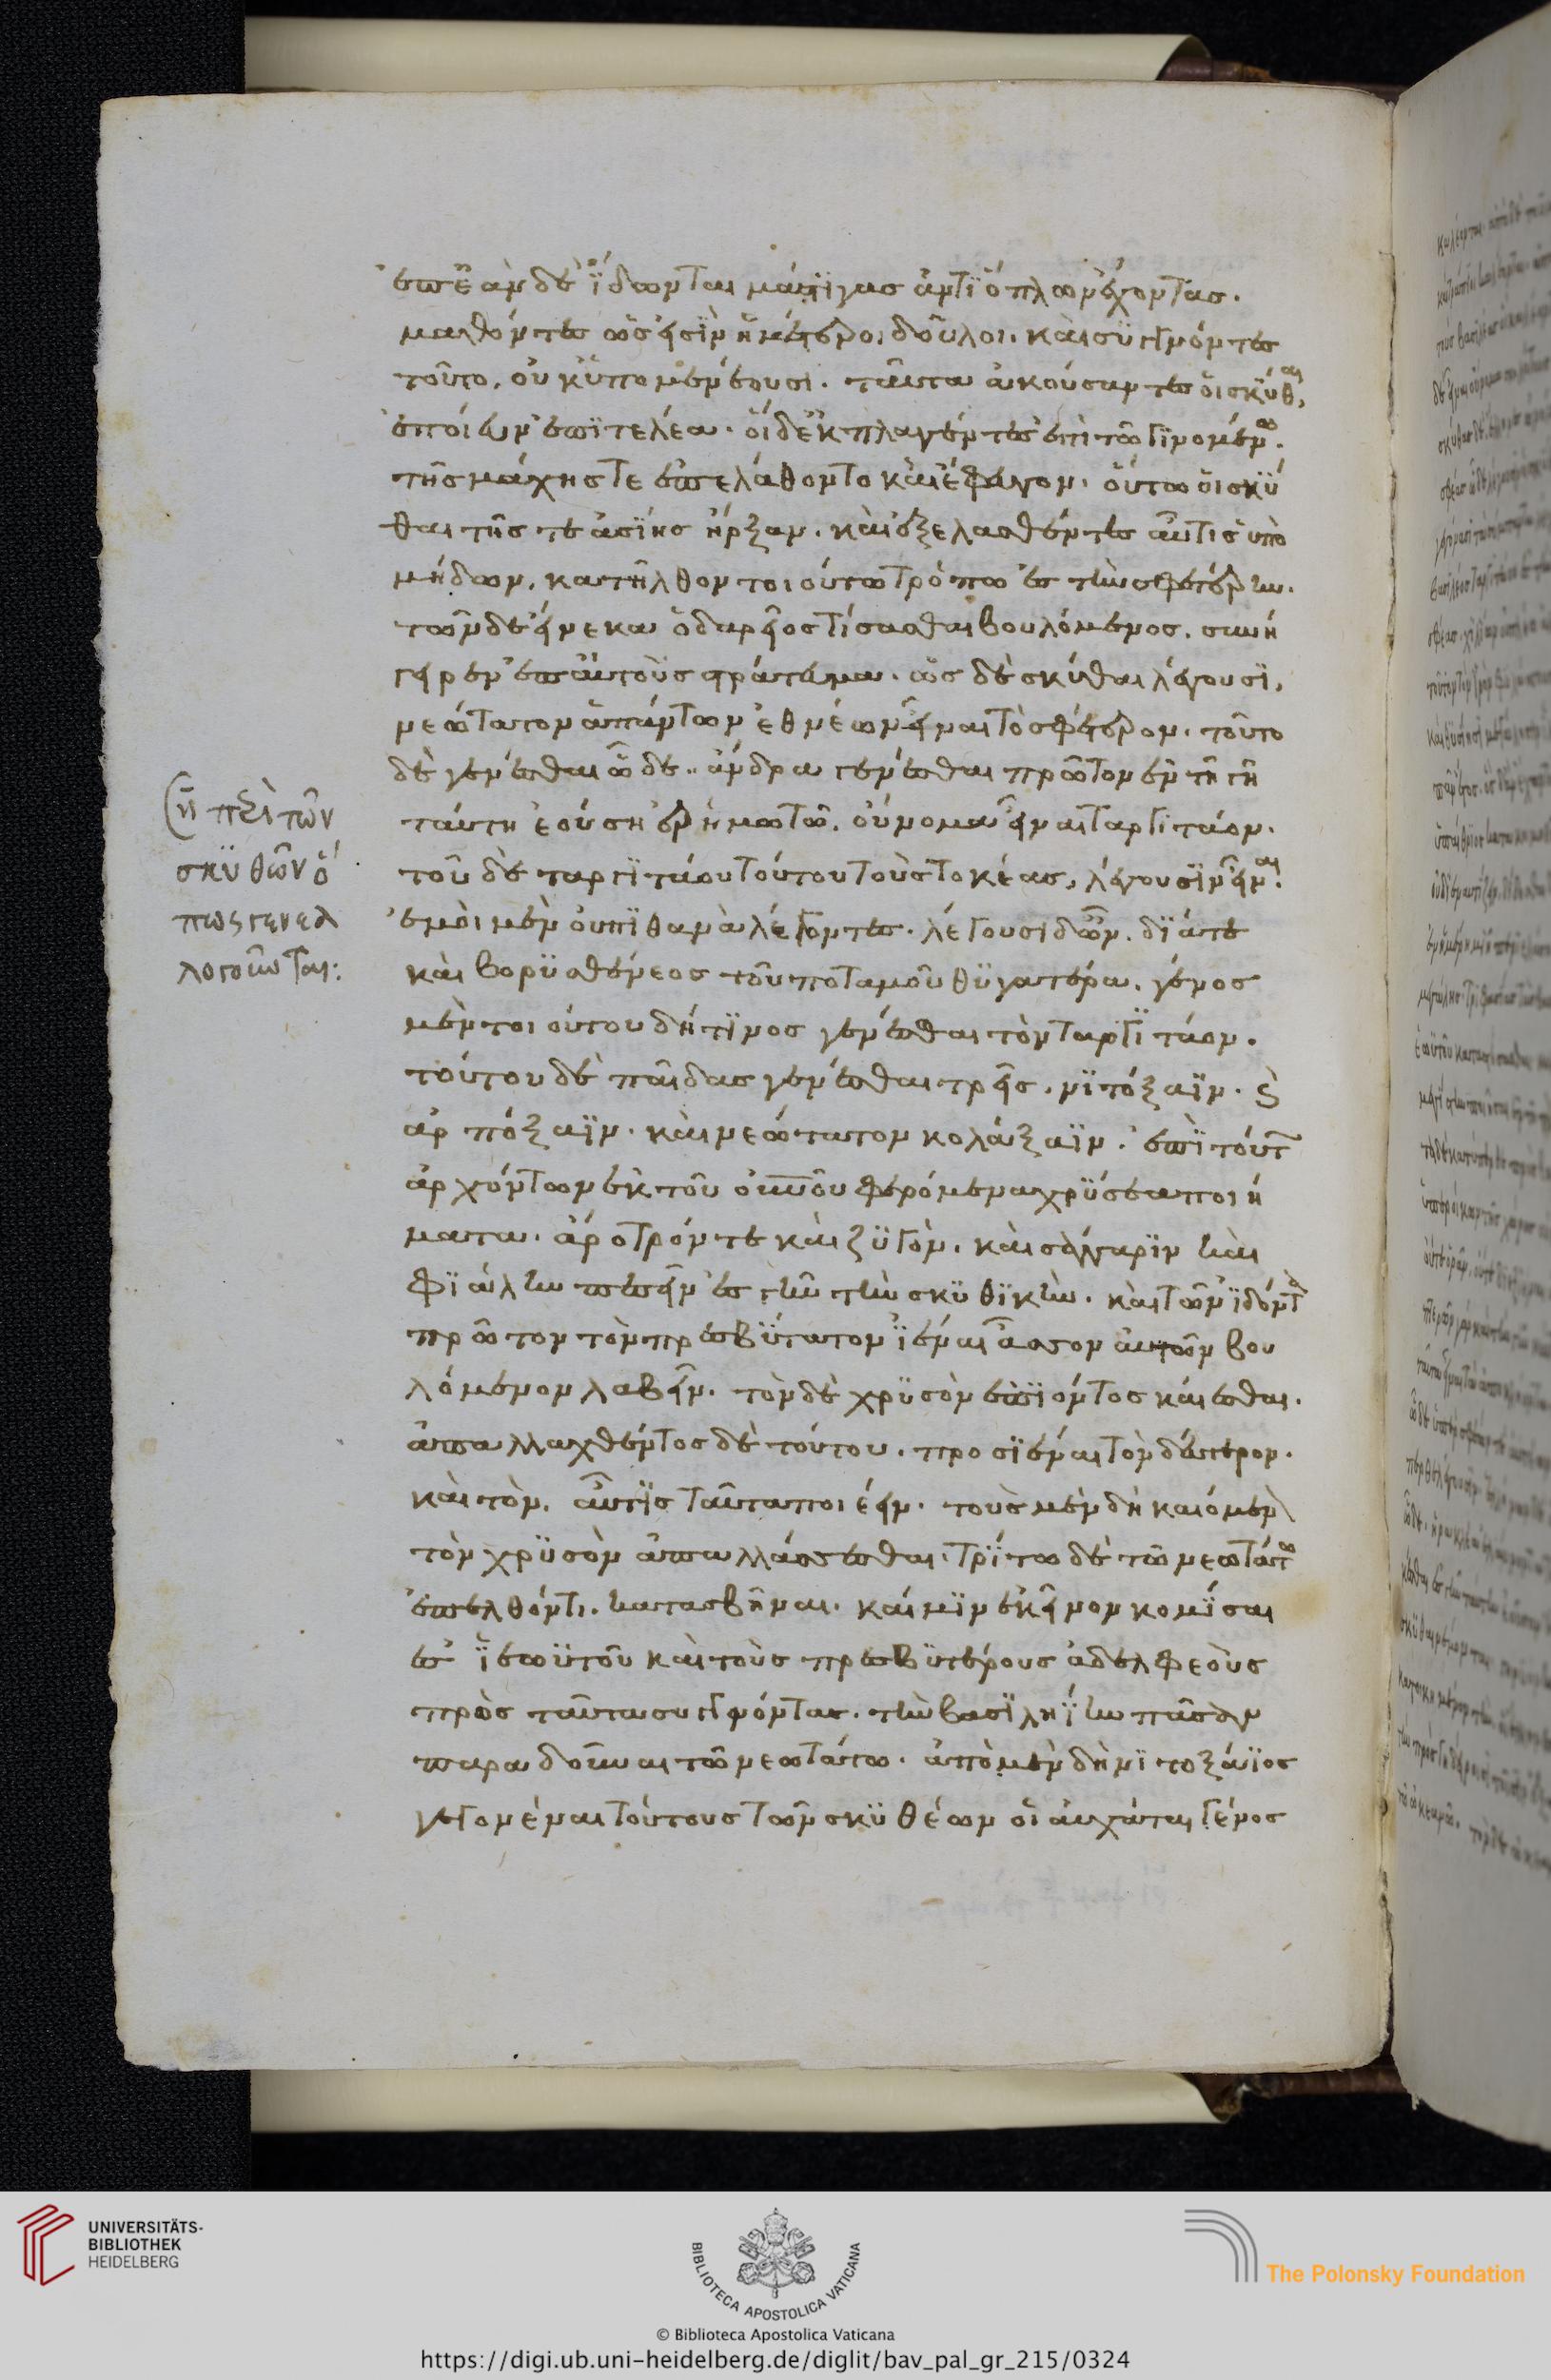 ἐπεὰν δὲ ἴδωνται μάστιγας ἀντὶ ὅπλων ἔχοντας.
μαθόντες ὥς εἰσὶν ἡμέτεροι δοῦλοι. καὶ συγγνόντες
τοῦτο, οὐκ ὑπομενέουσι. ταῦτα ἀκούσαντες οἱ σκύθαι,
ἐποίευν ἐπιτελέα. οἱ δ' ἐκπλαγέντες ἐπὶ τῶ γινομένω.
τῆς μάχης τε ἐπελάθοντο καὶ ἔφευγον. οὕτω οἱ σκύ
θαι τῆς τε ἀσίης ἦρξαν. καὶ ἐξελασθέντες αὖτις ὑπὸ
μήδων, κατῆλθον τοιούτω τρόπω ἐς τὴν σφετέρην.
τῶνδε εἵνεκα ὁ δαρεῖος τίσασθαι βουλόμενος, συνή
γειρεν ἐπ' αὐτοὺς στράτευμα. ὡς δὲ σκύθαι λέγουσι,
νεώτατον ἁπάντων ἐθνέων εἶναι τὸ σφέτερον. τοῦτο
δὲ γενέσθαι ὧδε. ἄνδρα γενέσθαι πρῶτον ἐν τῆ γῆ
ταύτη ἐούση ἐρήμω τῶ. οὔνομα εἶναι ταργιτάον.
τοῦ δὲ ταργιτάου τούτου τοὺς τοκέας, λέγουσιν εἶναι.
ἐμοὶ μὲν οὐ πιθανὰ λέγοντες. λέγουσι δ' ὦν. δία τε
καὶ βορυσθένεος τοῦ ποταμοῦ θυγατέρα. γένος
μὲν τοιούτου δή τινος γενέσθαι τὸν ταργιτάον.
τούτου δὲ παῖδας γενέσθαι τρεῖς. νιτόξαϊν. ϗ
ἀρπόξαϊν. καὶ νεώτατον κολάξαϊν. ἐπὶ τούτ
ἀρχόντων ἐκ τοῦ οὐνοῦ φερόμενα χρύσεα ποιή
ματα. ἄροτρόν τε καὶ ζυγὸν. καὶ σάγαριν καὶ
φιάλην πεσεῖν ἐς γῆν τὴν σκυθικὴν. καὶ τῶν ἰδόντα
πρῶτον τὸν πρεσβύτατον ἰέναι ἆσσον αὐτῶν βου
λόμενον λαβεῖν. τὸν δὲ χρυσὸν ἐπιόντος καίεσθαι.
ἀπαλλαχθέντος δὲ τούτου. προσιέναι τὸν δεύτερον.
καὶ τὸν, αὖτις ταῦτα ποιέειν. τοὺς μὲν δὴ καιόμεν
τὸν χρυσὸν ἀπαλλάσσεσθαι. τρίτω δὲ τῶ νεωτάτω
ἐπελθόντι. κατασβῆναι. καί μιν ἐκεῖνον κομίσαι
ἐς ἑωυτοῦ καὶ τοὺς πρεσβυτέρους ἀδελφεοὺς
πρὸς ταῦτα συγγνόντας. τὴν βασιληΐην πᾶσαν
παραδοῦναι τῶ νεωτάτω. ἀπὸ μὲν δὴ νιτοξάϊος
γεγονέναι τούτους τῶν σκυθέων οἳ αὐχάται γένος
ση περὶ τῶν
σκυθῶν ὅ
πως γενεα
λογοῦνται:
UNIVERSITÄTS-
BIBLIOTHEK
HEIDELBERG
BIBLIOTECA APOSTOLICA VATICANA
The Polonsky Foundation
© Biblioteca Apostolica Vaticana
https://digi.ub.uni-heidelberg.de/diglit/bav_pal_gr_215/0324